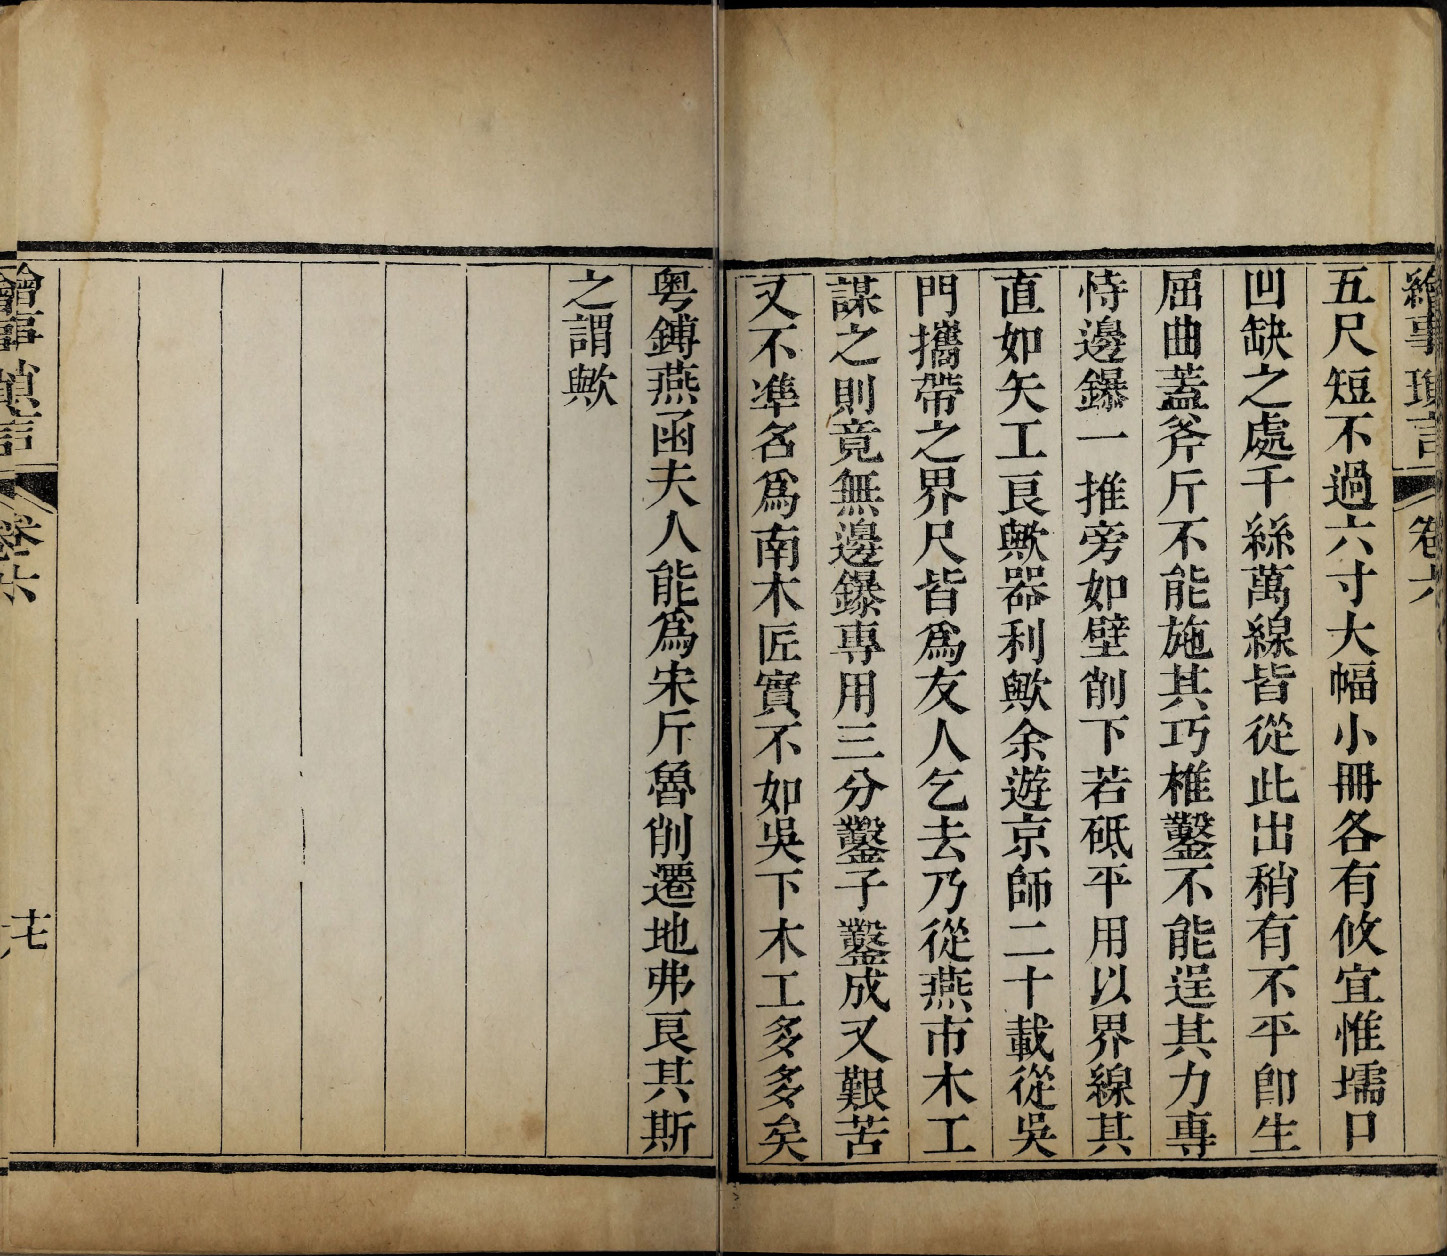 繪事瑣言 卷六
五尺短不過六寸大幅小冊各有攸宜惟壖口
凹缺之處千絲萬線皆從此出稍有不平卽生
屈曲蓋斧斤不能施其巧椎鑿不能逞其力專
恃邊鑤一推旁如壁削下若砥平用以界線其
直如矢工良歟器利歟余遊京師二十載從吳
門攜帶之界尺皆爲友人乞去乃從燕市木工
謀之則竟無邊鑤專用三分鑿子鑿成又艱苦
又不準名爲南木匠實不如吳下木工多多矣
粤鎛燕函夫人能爲宋斤魯削遷地弗良其斯
之謂歟
繪事瑣言 卷六 十七